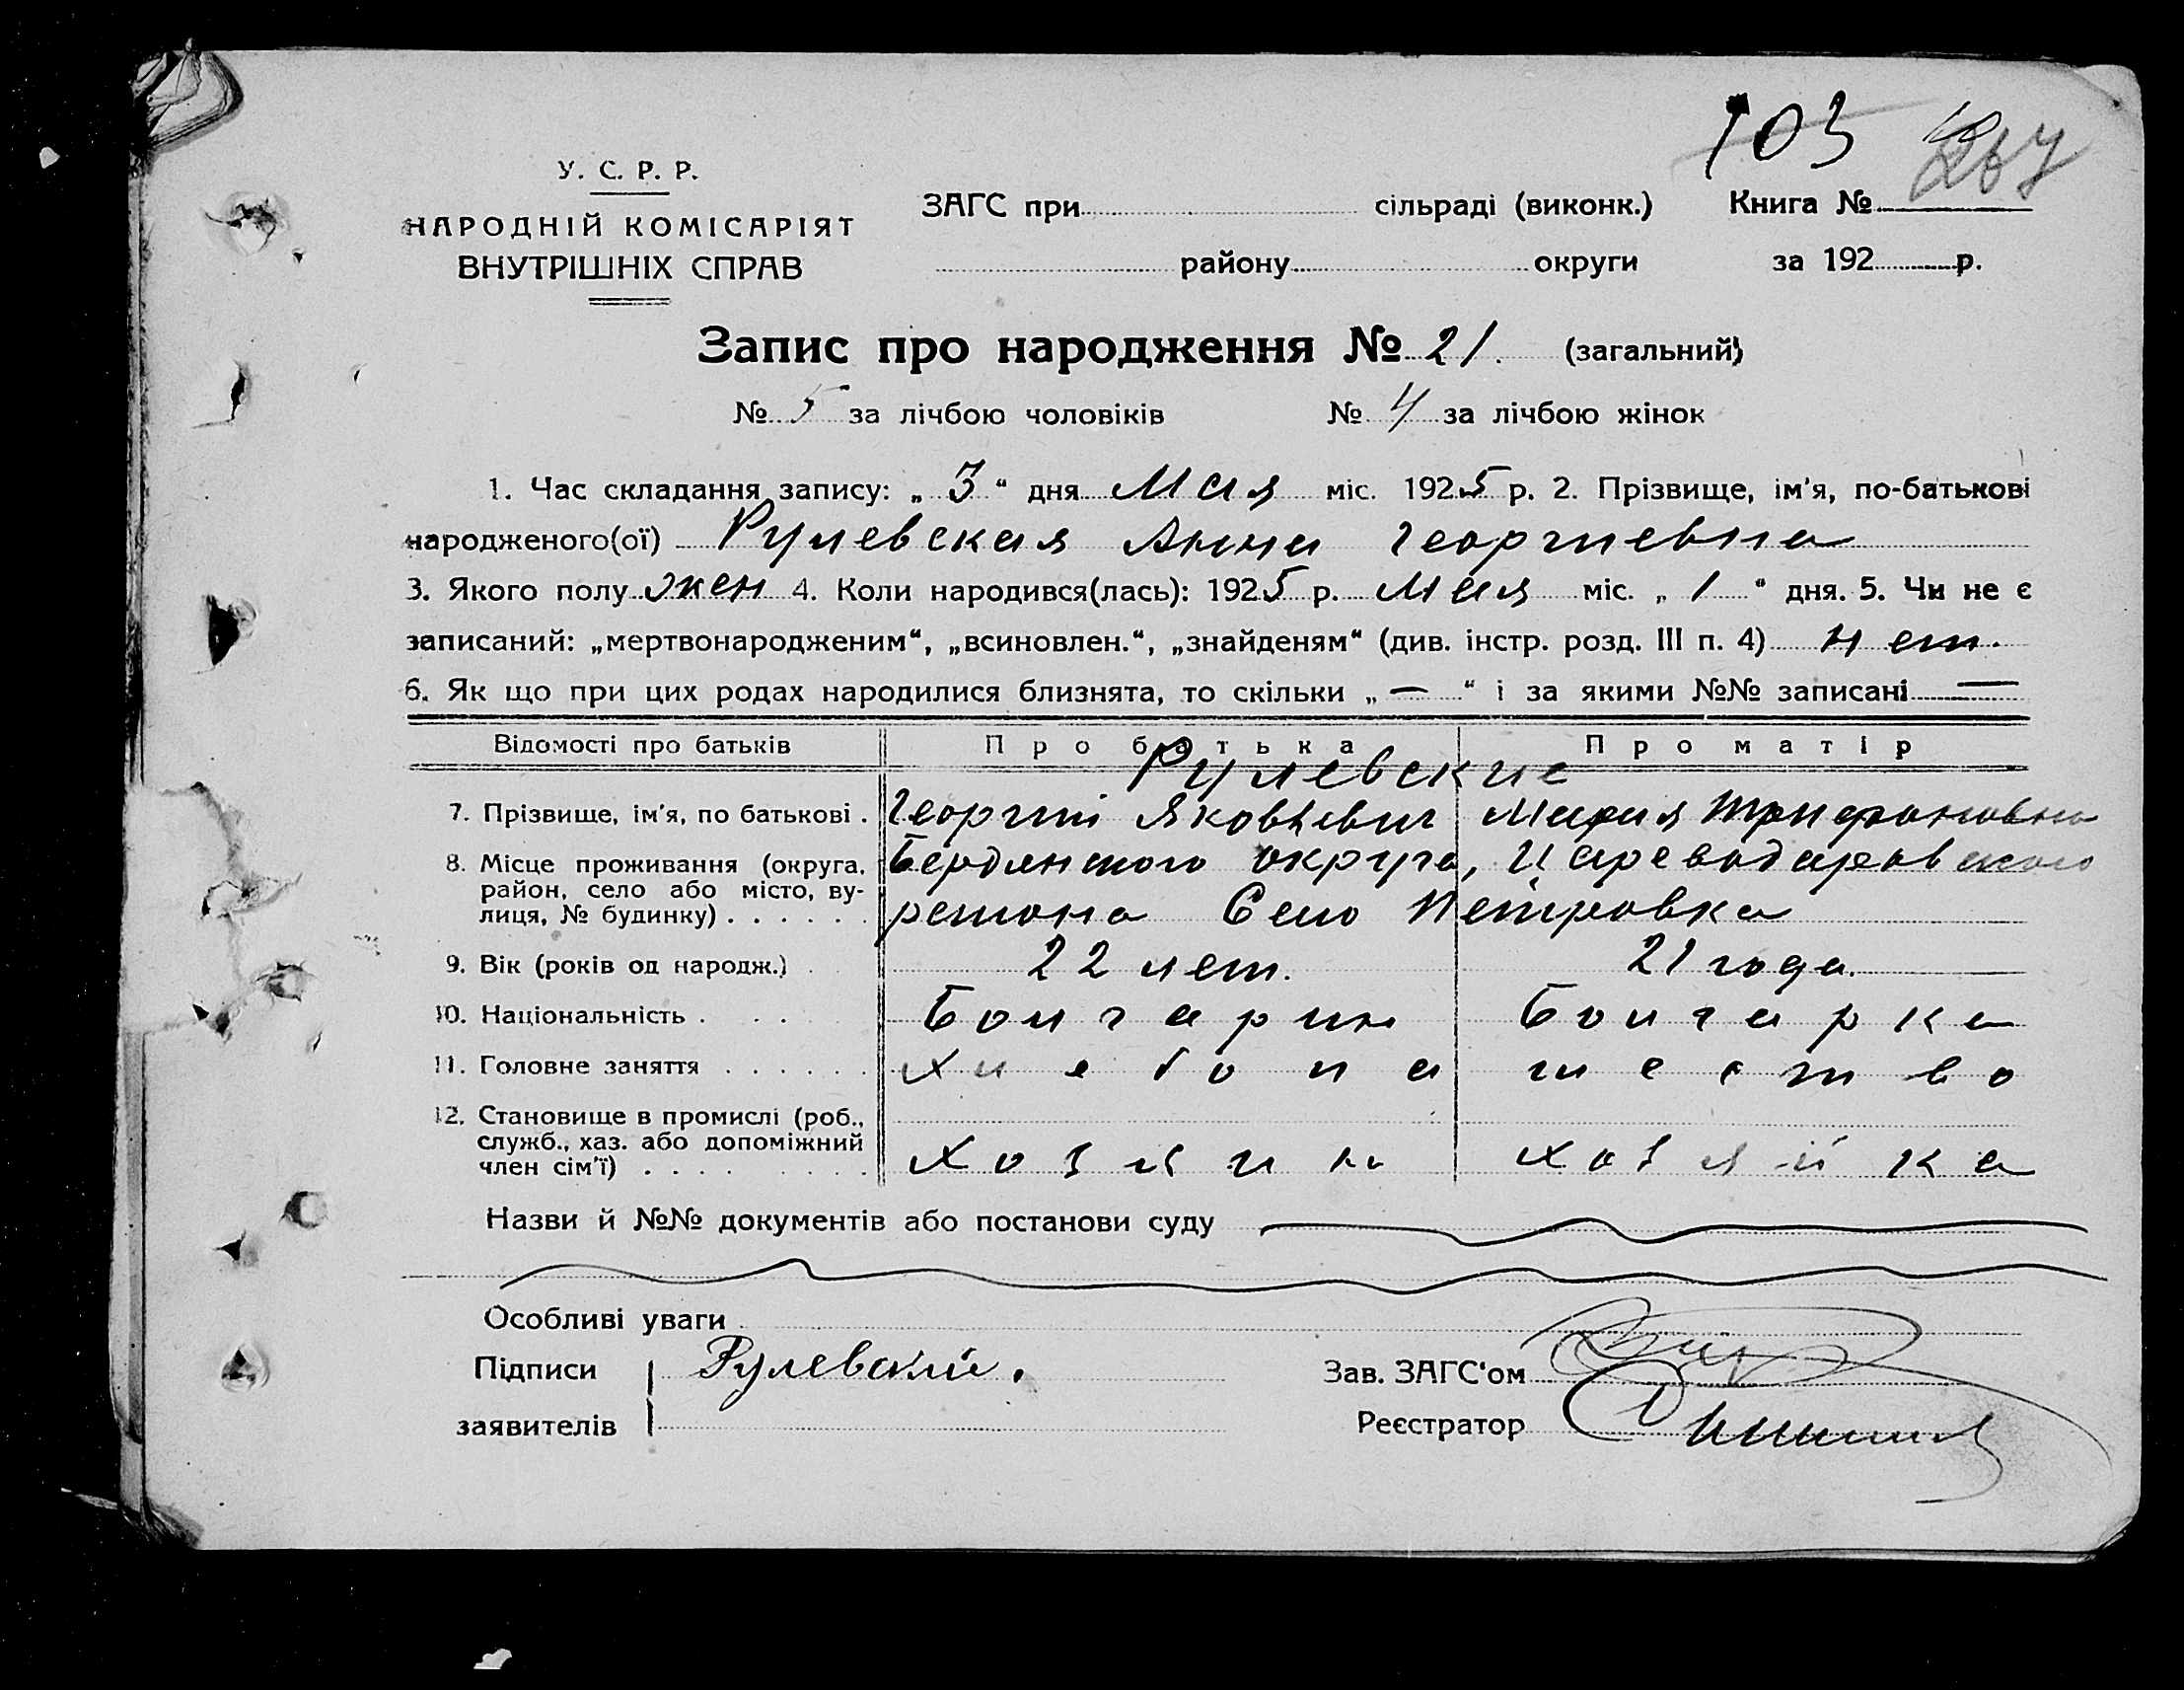 103 267
У. С. Р. Р.
НАРОДНІЙ КОМІСАРІЯТ
ВНУТРІШНІХ СПРАВ
ЗАГС при сільраді (виконк.) Книга №
району округи за 192 р.
Запис про народження № 21. (загальний)
№ 5 за лічбою чоловіків № 4 за лічбою жінок
1. Час складання запису: „ 3 “ дня Мая міс. 1925 р. 2. Прізвище, ім'я, по-батькові
народженого(ої) Рулевская Анна Георгиевна
3. Якого полу жен 4. Коли народився(лась): 1925 р. Мая міс. „ 1 “ дня. 5. Чи не є
записаний: „мертвонародженим“, „всиновлен.“, „знайденям“ (див. інстр. розд. III п. 4) нет.
6. Як що при цих родах народилися близнята, то скільки „ — “ і за якими №№ записані —
Відомості про батьків Про батька Про матір
Рулевские
7. Прізвище, ім'я, по батькові . Георгий Яковлевич Мария Трифоновна
8. Місце проживання (округа, Бердянского округа, Цареводаровского
район, село або місто, ву-
лиця, № будинку) . . . . . . района Село Петровка
9. Вік (років од народж.) . 22 лет. 21 года.
10. Національність . . . Болгарин Болгарка
11. Головне заняття . . . . . . хлебопашество
12. Становище в промислі (роб.,
служб., хаз. або допоміжний
член сім'ї) . . . . . . . хозяин хозяйка
Назви й №№ документів або постанови суду
Особливі уваги
Підписи Рулевский. Зав. ЗАГС'ом
заявителів Реєстратор